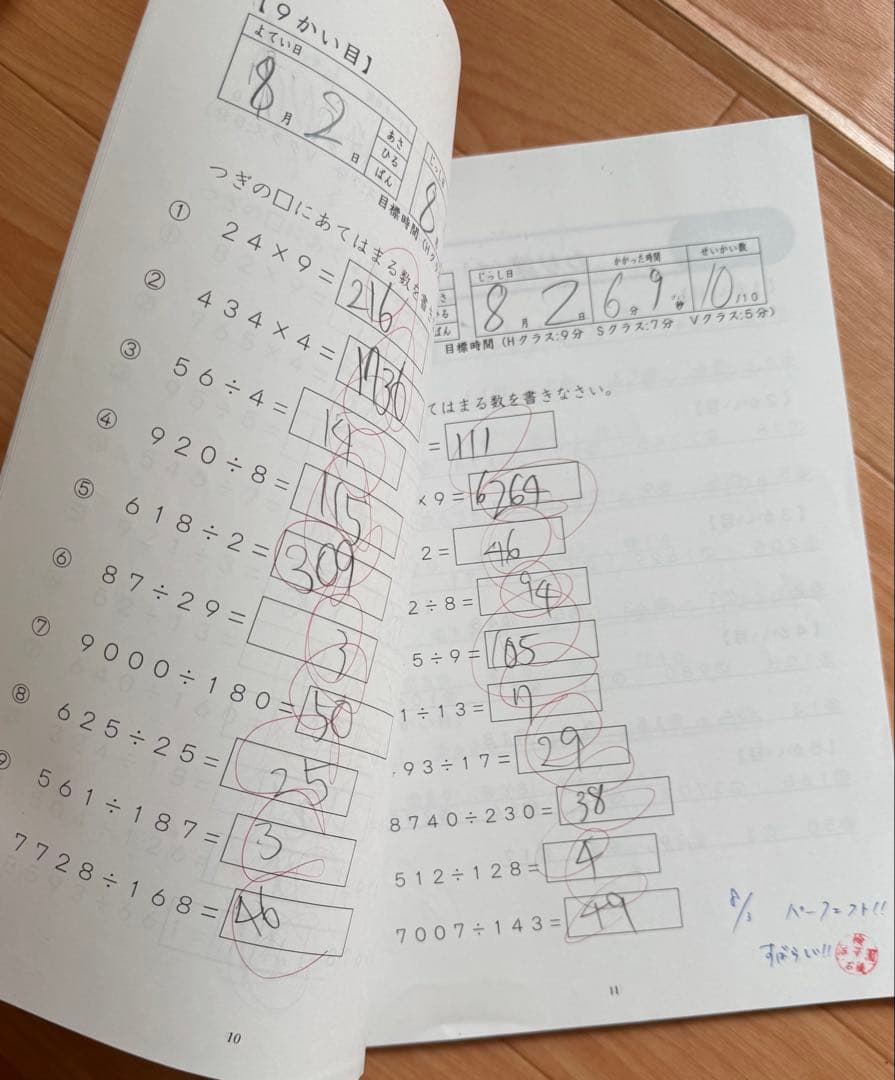 【9かい目】
よてい日
8月2日
あさ
ひる
ばん
じっし日
8
目標時間(Hクラ
つぎの□にあてはまる数を書き
① 24×9=216
② 434×4=1736
③ 56÷4=14
④ 920÷8=115
⑤ 618÷2=309
⑥ 87÷29=3
⑦ 9000÷180=50
⑧ 625÷25=25
⑨ 561÷187=3
7728÷168=46
10
さ
ひる
ばん
じっし日 かかった時間 せいかい数
8月2日 6分9秒 10/10
目標時間(Hクラス:9分 Sクラス:7分 Vクラス:5分)
てはまる数を書きなさい。
=111
×9=6264
2=46
2÷8=94
5÷9=105
1÷13=7
93÷17=29
8740÷230=38
512÷128=4
7007÷143=49
8/3 パーフェクト!!
すばらしい!!
11